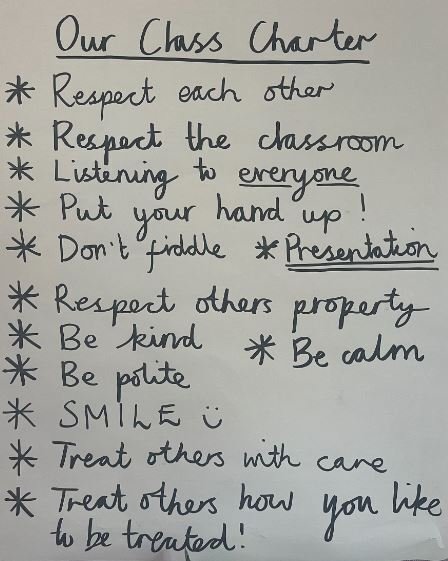 Our Class Charter
* Respect each other
* Respect the classroom
* Listening to everyone
* Put your hand up!
* Don't fiddle * Presentation
* Respect others property
* Be kind * Be calm
* Be polite
* SMILE ☺
* Treat others with care
* Treat others how you like
to be treated!